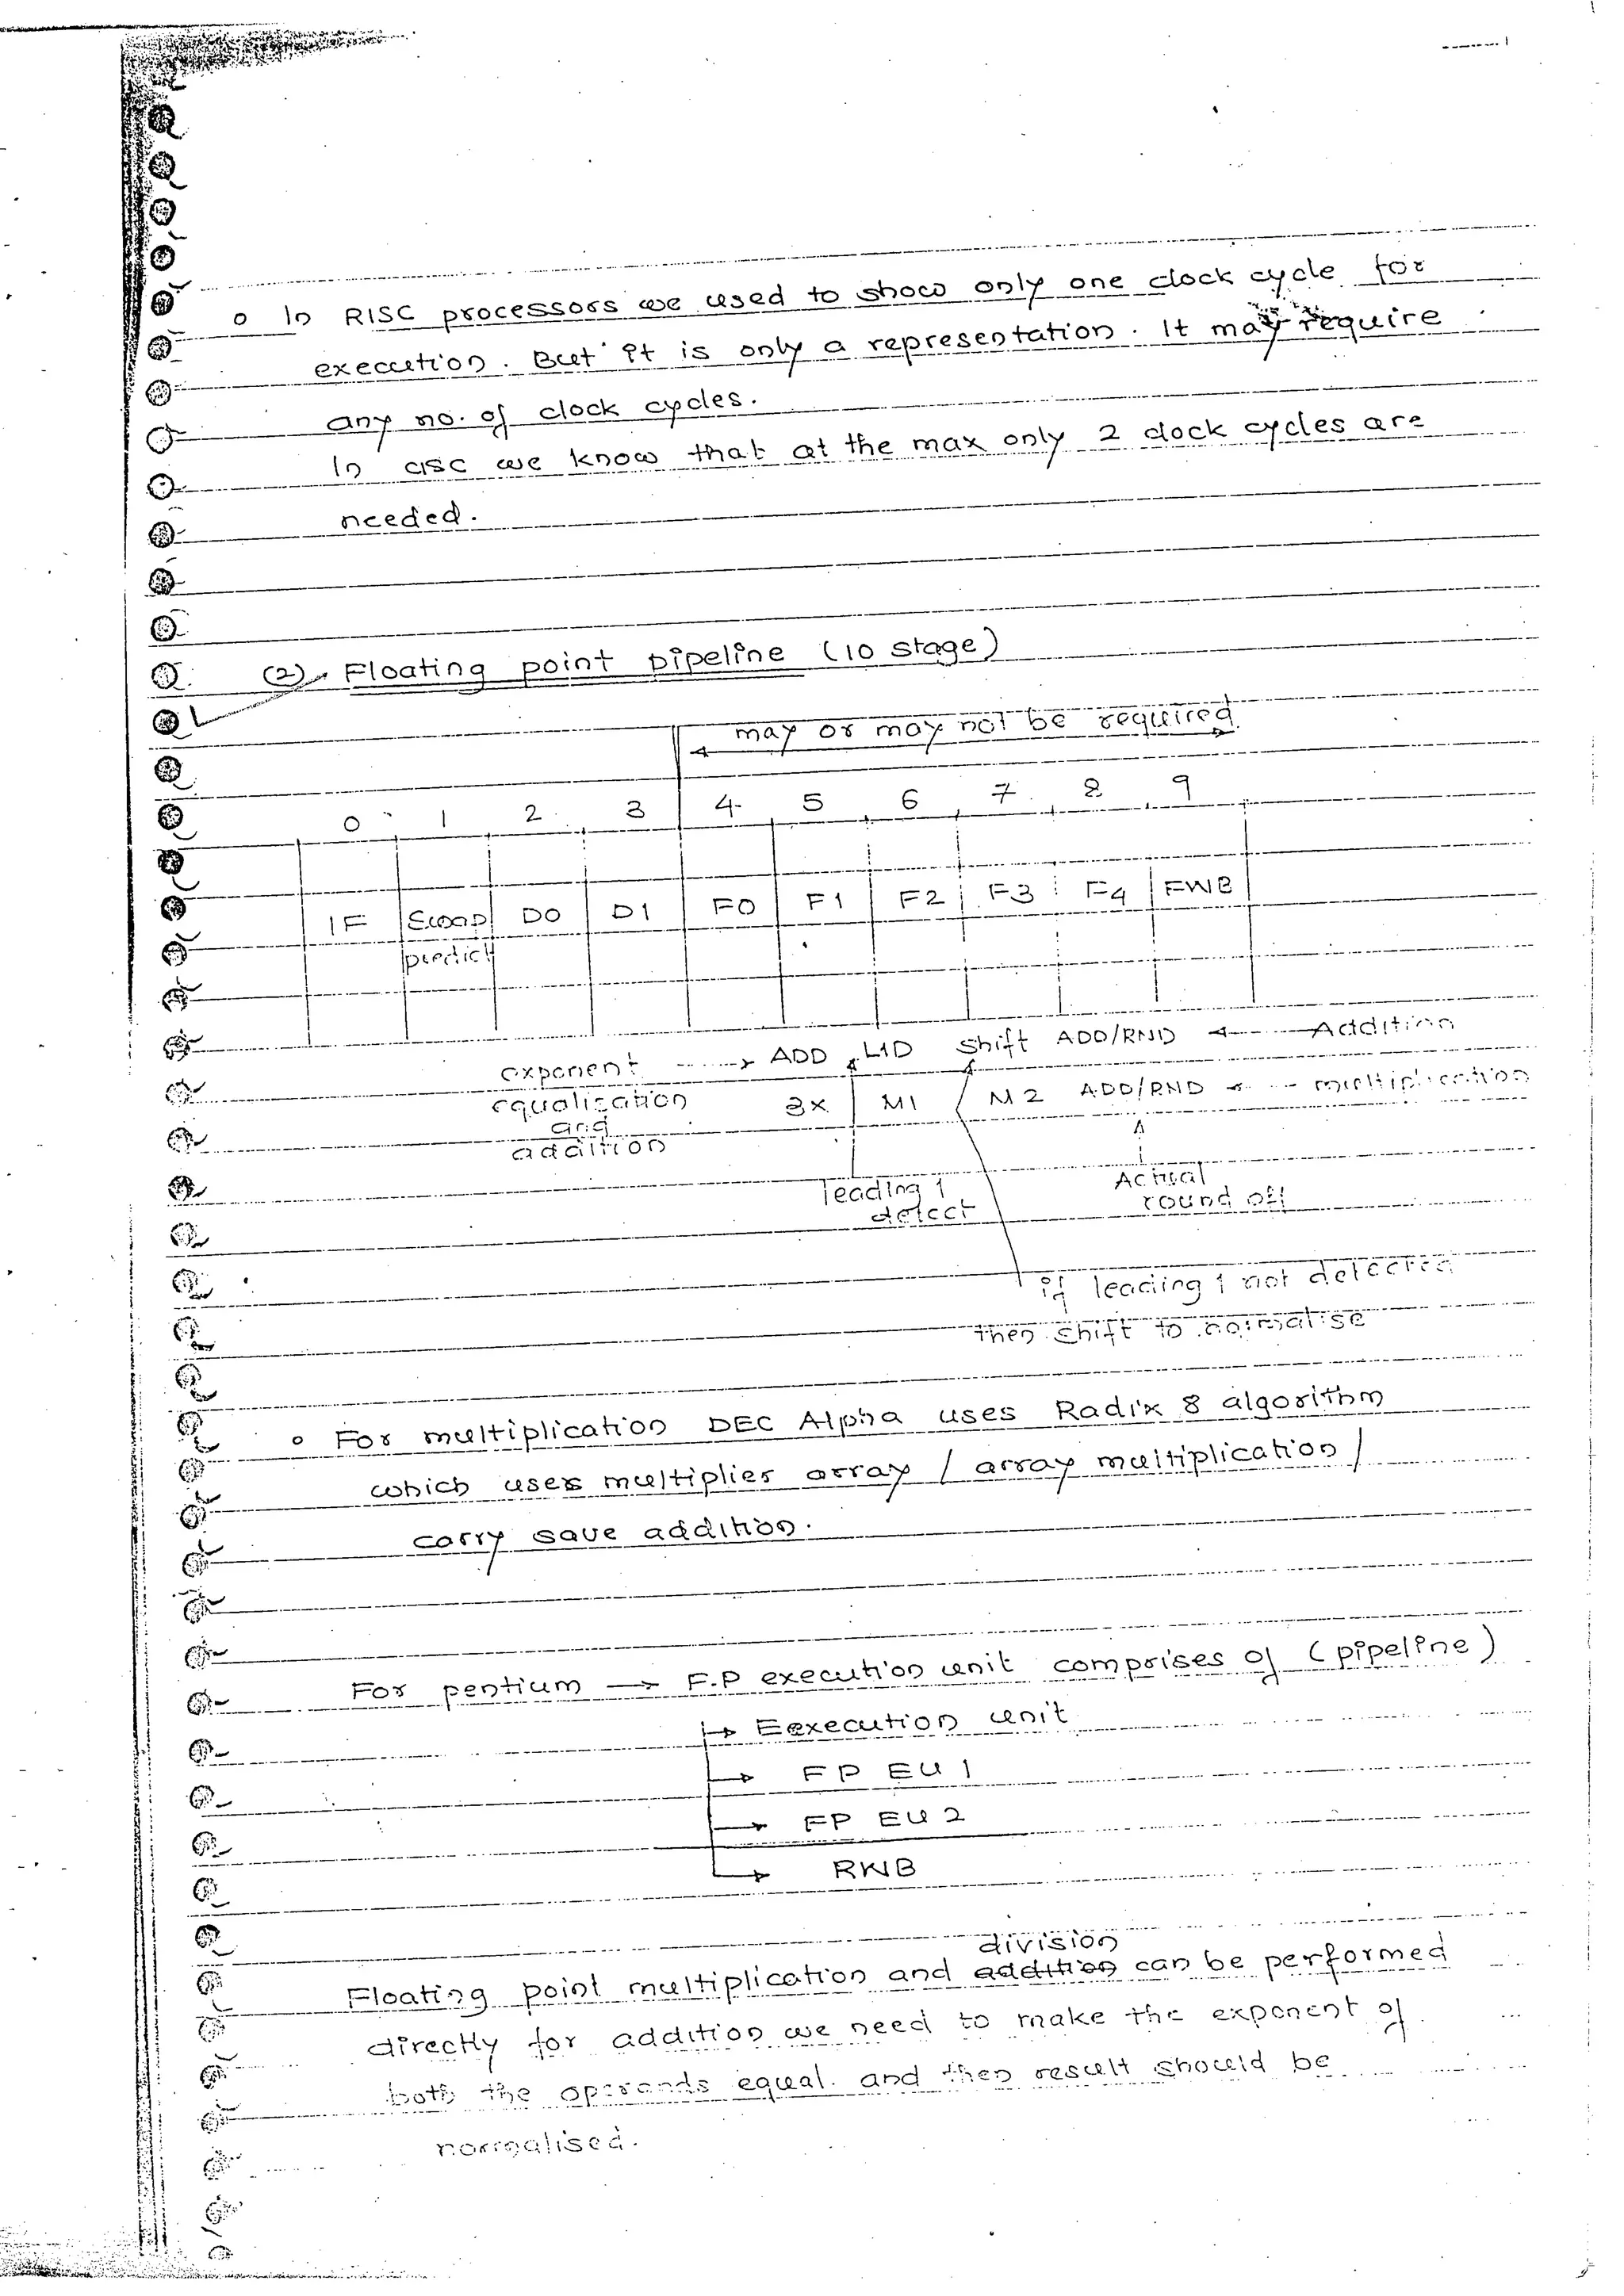 o In RISC processors we used to show only one clock cycle for
execution. But it is only a representation. It may require
any no. of clock cycles.
In CISC we know that at the max only 2 clock cycles are
needed.
(2) Floating point pipeline (10 stage)
may or may not be required
0 1 2 3 4 5 6 7 8 9
IF Swap D0 D1 F0 F1 F2 F3 F4 FWB
predict
exponent → ADD L1D shift ADD/RND ← Addition
equalisation 3x M1 M2 ADD/RND ← multiplication
and
addition
leading 1 Actual
detect round off
if leading 1 not detected
then shift to normalise
o For multiplication DEC Alpha uses Radix 8 algorithm
which uses multiplier array / array multiplication /
carry save addition.
For pentium → F.P execution unit comprises of (pipeline)
→ Eexecution unit
→ FP EU 1
→ FP EU 2
→ RWB
division
Floating point multiplication and addition can be performed
directly for addition we need to make the exponent of
both the operands equal. and then result should be
normalised.